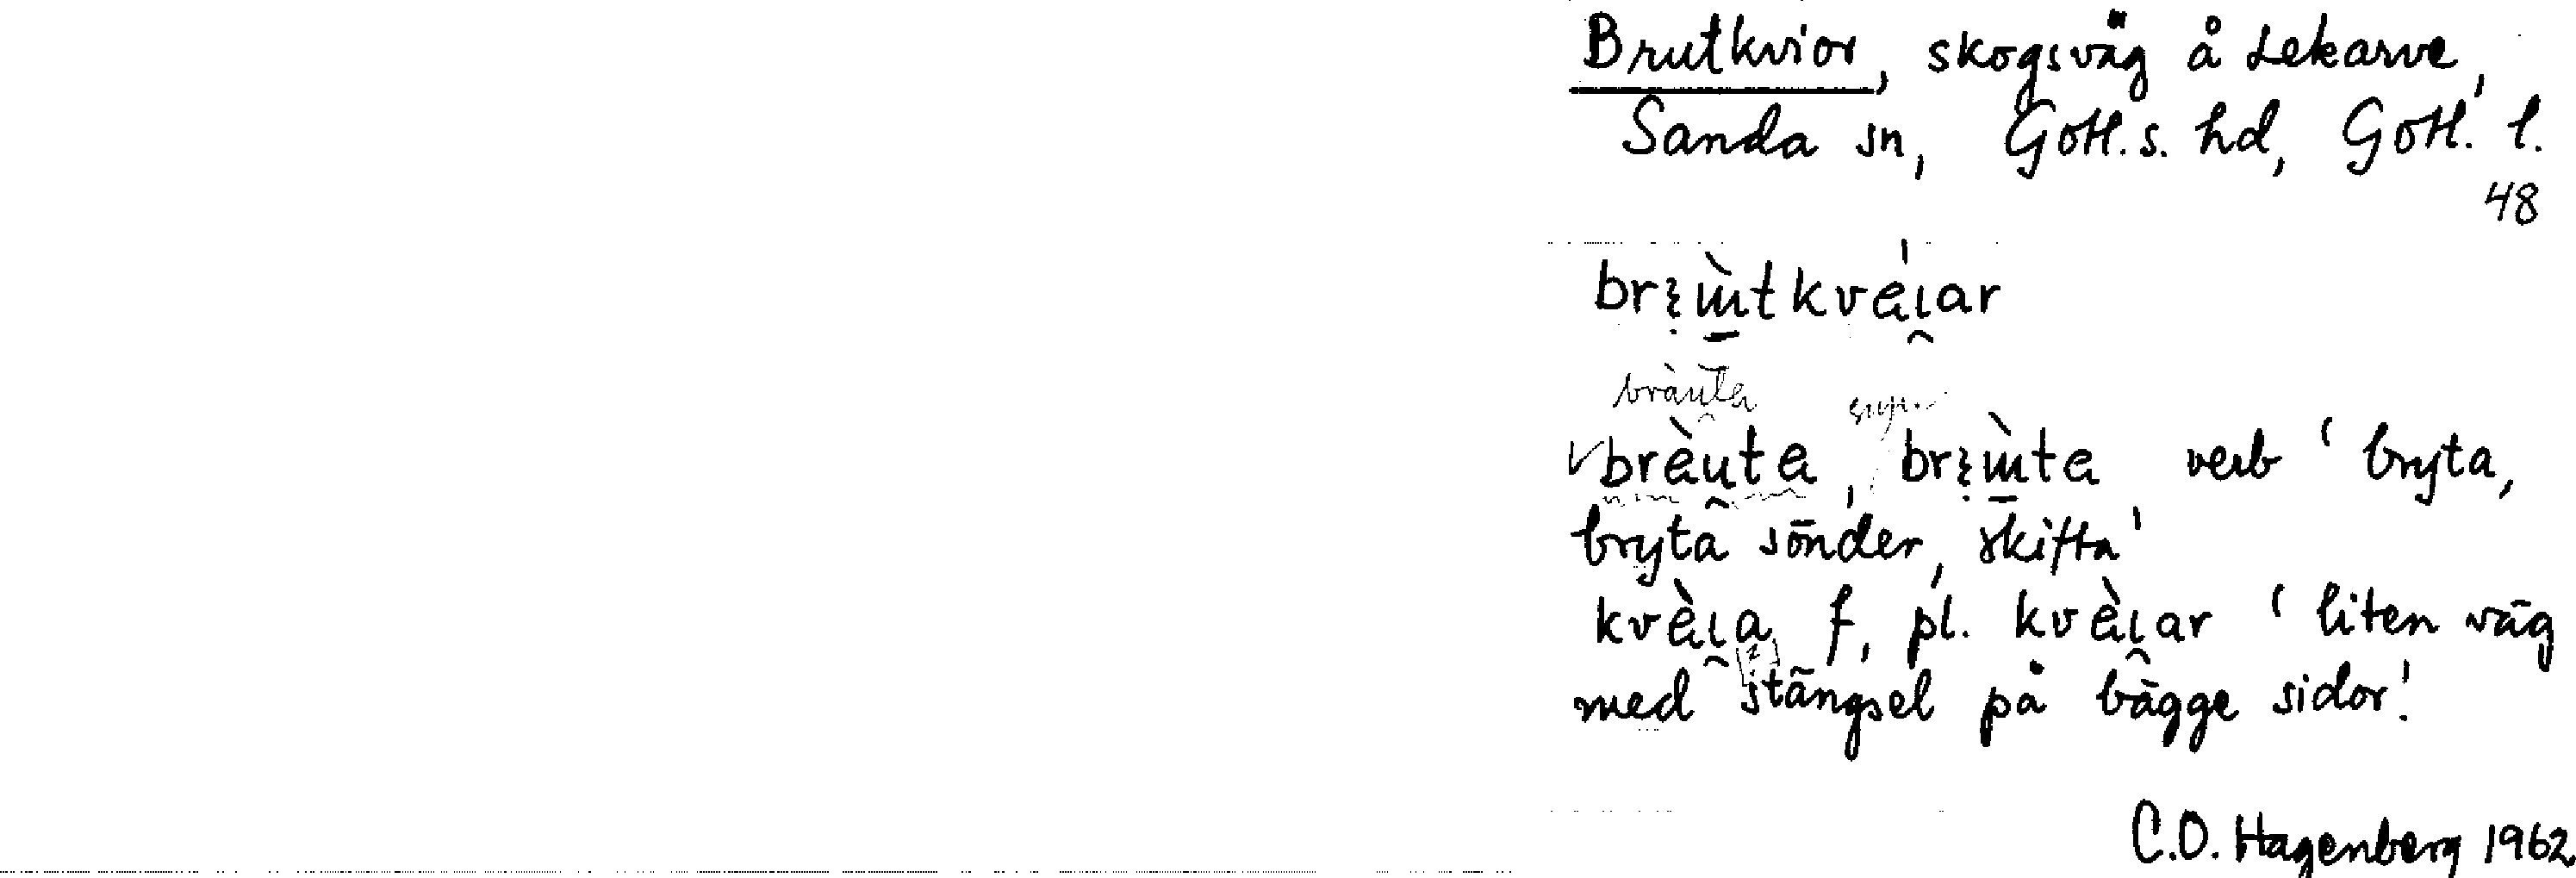 Brutkvior, skogsväg å Lekarve,
Sanda sn, Gotl. s. hd, Gotl. l.
48
bräuta
brè̯uta, verb ‘bryta,
bryta sönder, skifta’
kvèi̯a f, pl. kvèi̯ar ‘liten väg
med stängsel på bägge sidor’
C.O. Hagenberg 1962